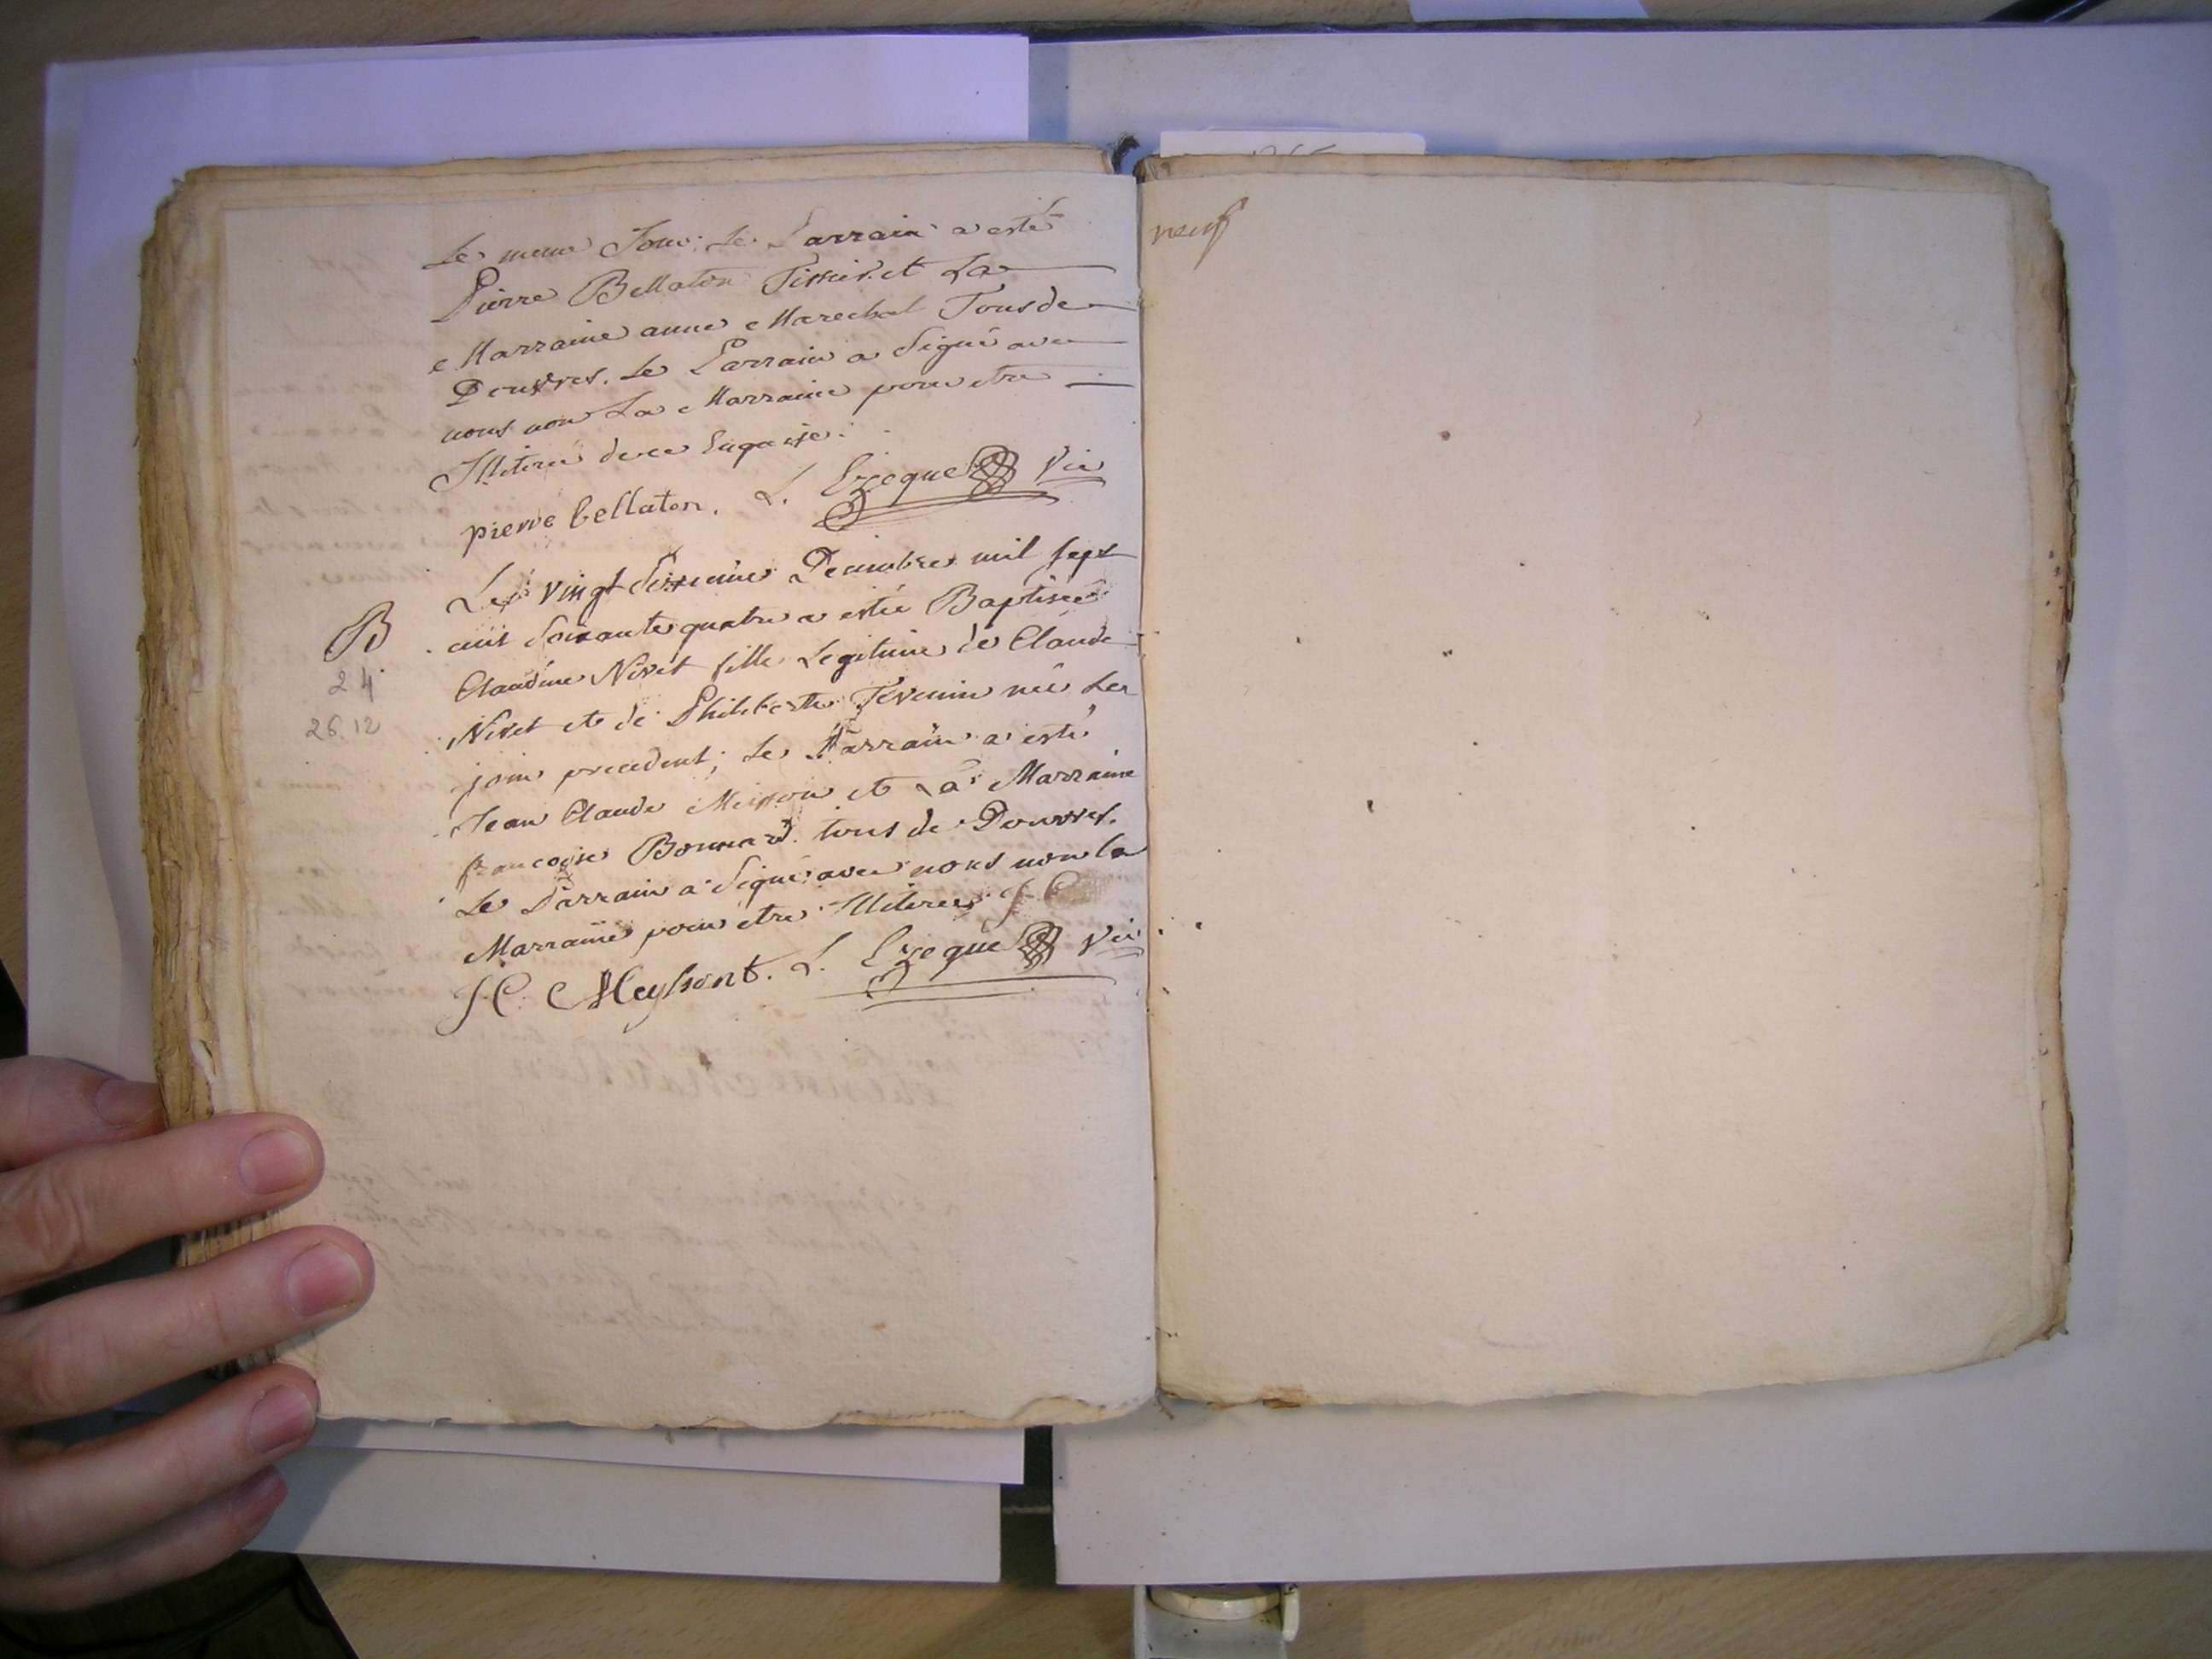 Le meme Jour; Le Parrain a esté
Pierre Bellaton Tissier et La
Marraine anne Marechal Tous de
Douvres. Le Parrain a Signé avec
nous non La Marraine pour etre
Illiterée de ce Enquise.
pierre bellaton. L. Ezeque Vic
Le vingt Sixieme Decembre mil sept
B cent Soixante quatre a estée Baptisée
24 Claudine Niret fille Legitime de Claude
26.12 Niret et de Philiberte Tévenin née Le
jour precedent; Le Parrain a esté
Jean Claude Meisson et La Marraine
francoise Bonnard tous de Douvres.
Le Parrain a Signé avec nous non la
Marraine pour etre Illiterée J C
J. C. Meyssont. L. Ezeque Vic
neuf